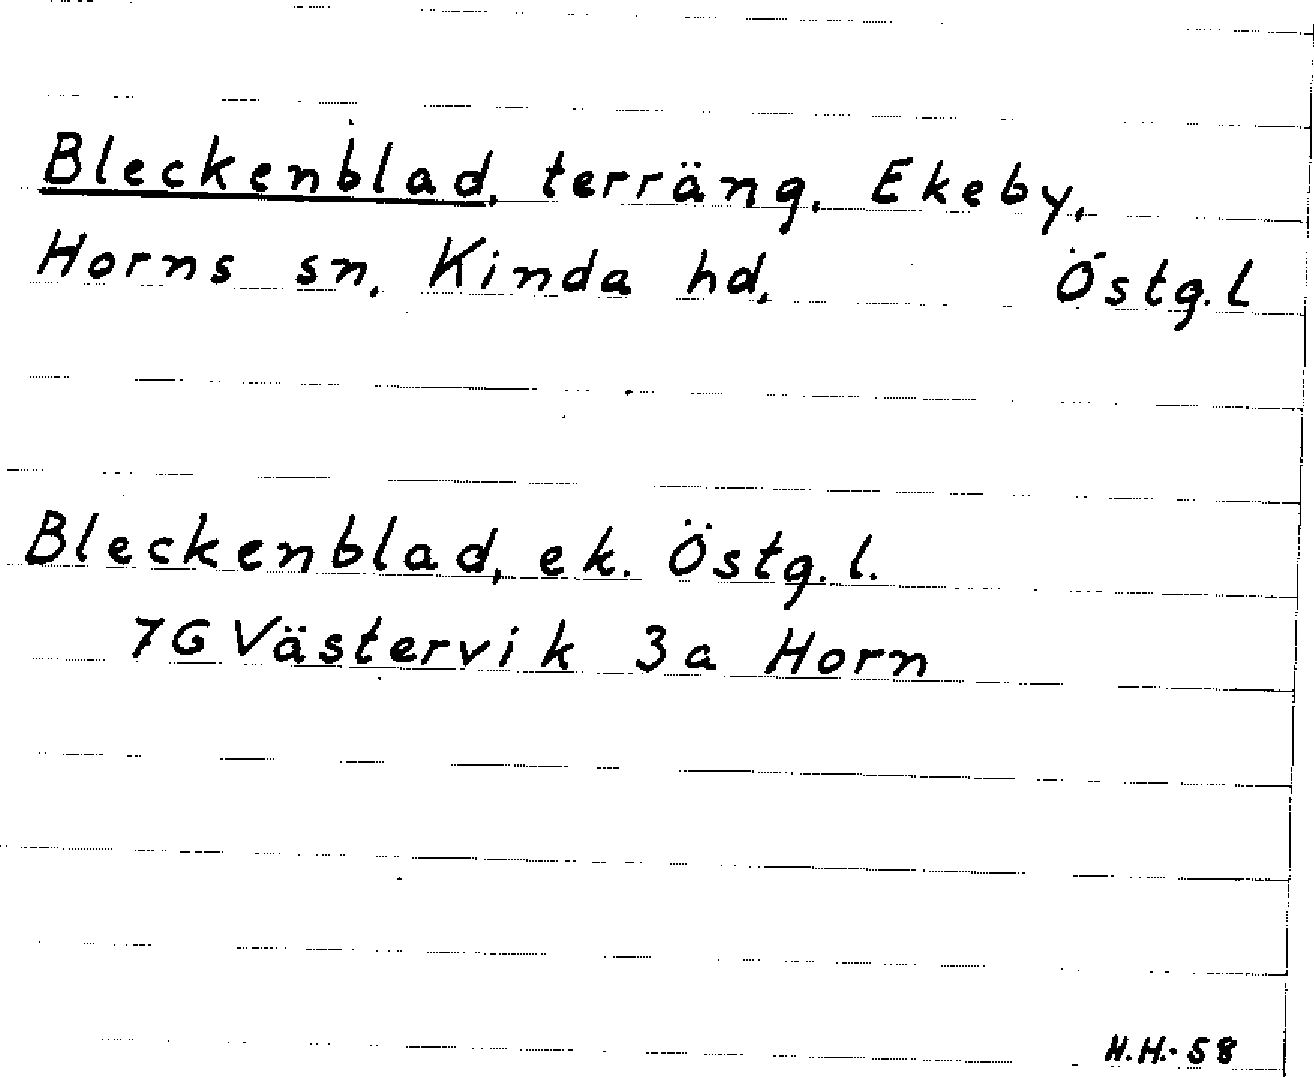 Bleckenblad, terräng, Ekeby,
Horns sn, Kinda hd, Östg. l
Bleckenblad, ek. Östg. l.
7G Västervik 3a Horn
H.H.-58